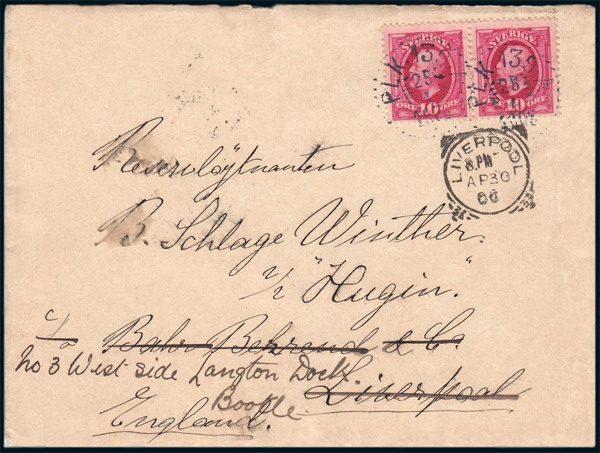 SVERIGE SVERIGE
PLK 13. PLK 13.
28 28
10 ÖRE ÖRE 10 ÖRE
LIVERPOOL
8 PM
AP 30
Reservlöjtnanten
B. Schlage Winther.
"Hugin."
Bahr Behrend & C.
No 3 West side Langton Dock
Liverpool
Bootle
England.